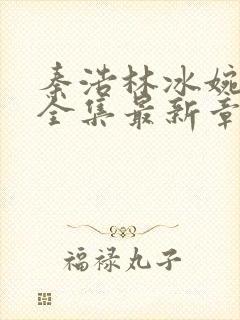 秦浩林冰婉
全集最新章
福禄丸子